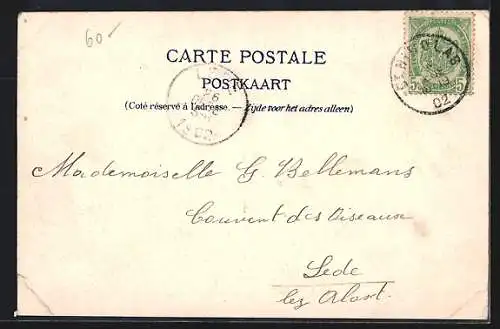 60-
CARTE POSTALE
POSTKAART
(Coté réservé à l'adresse. — Zijde voor het adres alleen)
5 5
02
1902
Mademoiselle G. Bellemans
Couvent des Oiseaux
Lede
lez Alost.